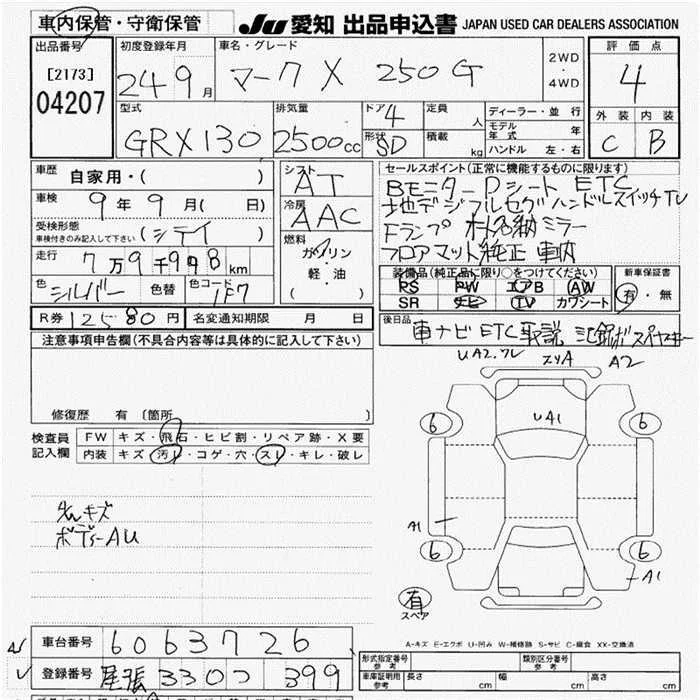 車内保管・守衛保管
JU 愛知 出品申込書 JAPAN USED CAR DEALERS ASSOCIATION
出品番号
[2173]
04207
初度登録年月
24 9月
車名・グレード
マークX 250G
2WD
・
4WD
評価点
4
外装 内装
C B
型式
GRX130
排気量
2500cc
ドア 4
形状 SD
定員
人
積載
kg
ディーラー・並行
モデル年式 年
ハンドル 左・右
車歴
自家用・( )
車検
9年9月( 日)
受検形態
車検付きのみ記入して下さい
(シティ)
走行
7万9千998km
色 シルバー 色替
色コード 1F7
シフト AT
冷房 AAC
燃料
ガソリン
軽・油
( )
セールスポイント(正常に機能するものに限ります)
Bモニター Dシート ETC
地デジフルセグ ハンドルスイッチTV
Fランプ オート格納ミラー
フロアマット純正 車内
装備品(純正品に限り○をつけてください)
PS PW エアB AW
SR ナビ TV カワシート
新車保証書
有・無
R券 12580円
名変通知期限 月 日
後日品
車ナビ ETC取説 記録ボ スペヤキー
注意事項申告欄(不具合内容等は具体的に記入して下さい)
修復歴 有 〔箇所
検査員
記入欄
FW キズ・飛石・ヒビ割・リペア跡・X要
内装 キズ・汚レ・コゲ・穴・スレ・キレ・破レ
UA2.ワレ
スリA
A2
UA1
6 6
A1
6 6
A1
有
スペア
キズ
ボデーAU
A-キズ E-エクボ U-凹み W-補修跡 S-サビ C-腐食 XX-交換済
車台番号
6063726
登録番号
尾張 330 399
形式指定番号
参考
類別区分番号
参考
車庫証明用
参考
長さ cm
幅 cm
高さ cm